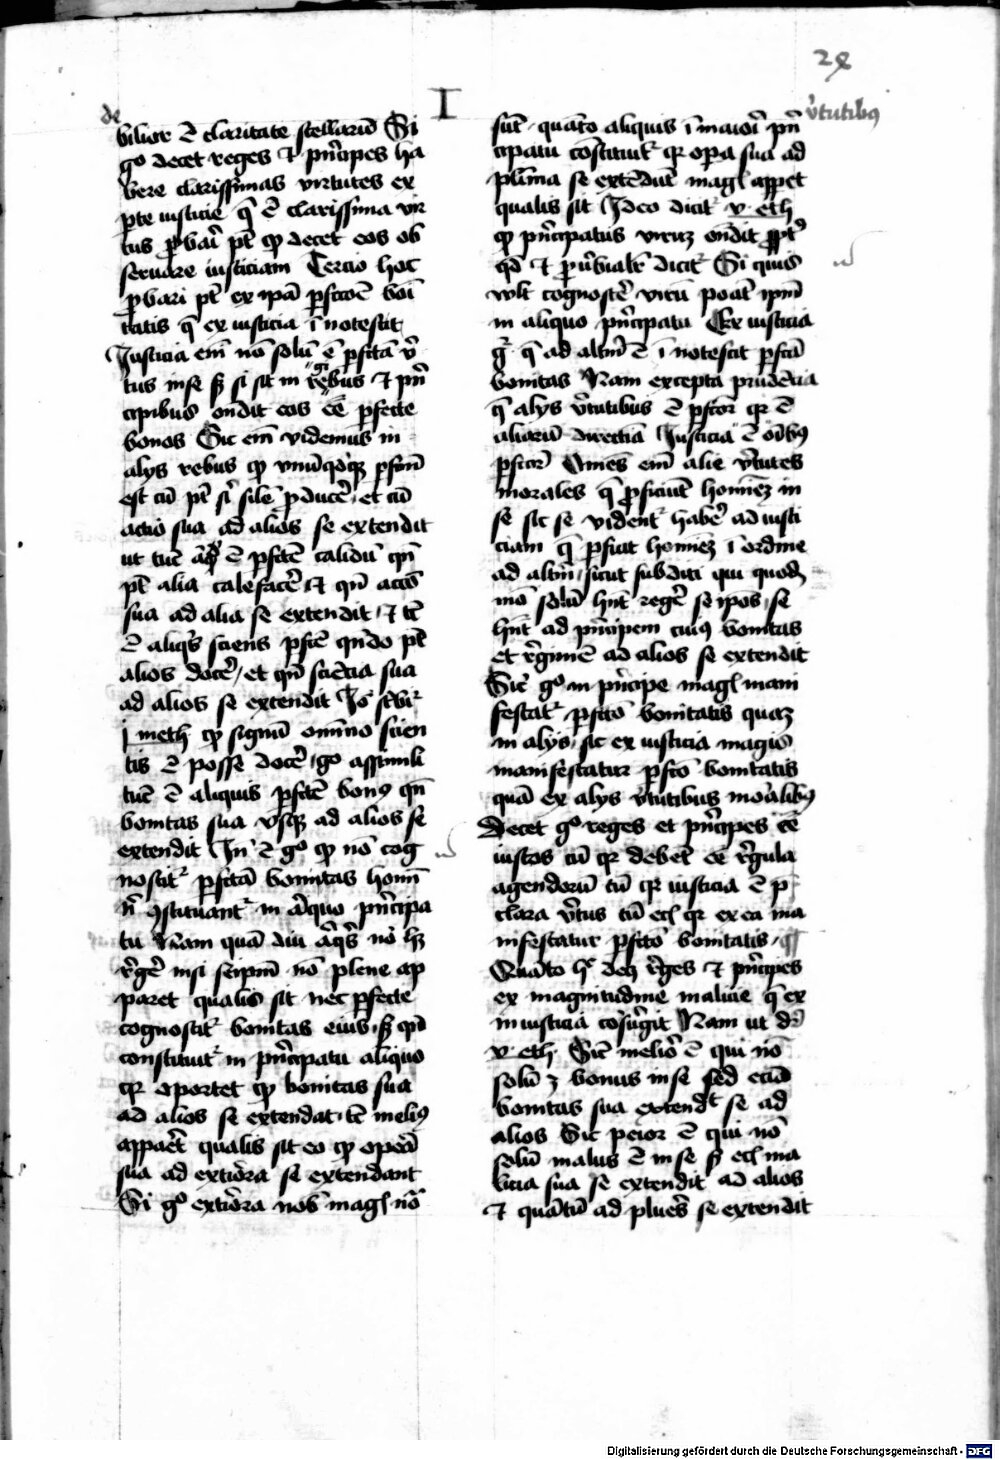 28
I
de
v̄tutibus
bilior ē claritate stellarū Si
go decet reges et pn̄cipes ha
bere clarissimas virtutes ex
ꝑte iusticie q̄ ē clarissima vir
tus ꝓbari pt̄ ꝙ decet eos ob
seruare iusticiam Tercio hoc
ꝓbari pt̄ ex ipā ꝑfectōē boni
tatis q̄ ex iusticia ī notescit
Justicia em̄ nō solū ē ꝑfcta v̄
tus in se sꝫ si sit in regibus et pn̄
cipibus ondit eos eē ꝑfecte
bonos Sic em̄ videmus in
alys rebus ꝙ vnūqdqꝫ ꝑfcm̄
est cū pt̄ sī sile ꝓducē et cū
actio sua ad alios se extendit
ut tūc ē ꝑfctē calidū qn̄
pt̄ alia calefacē et qn̄ actō
sua ad alia se extendit et tē
ē aliqs sciens ꝑfctē qn̄do pt̄
alios docē et qn̄ sciētia sua
ad alios se extendit Jo scbr̄
j meth ꝙ signū omnino scien
tis ē posse docē go assimili
tūc ē aliquis ꝑfctē bonus qn̄
bonitas sua vsqꝫ ad alios se
extendit In ē go ꝙ nō cog
noscit ꝑfcta bonitas homī
n̄ ꝯstituant in aliquo pn̄cipa
tu Nam quā diu aliqs nō hꝫ
regē nisi seipm̄ nō plene ap
paret qualis sit nec ꝑfecte
cognoscit bonitas eius sꝫ qn̄
constituit in pn̄cipatu aliquo
qr oportet ꝙ bonitas sua
ad alios se extendat tē melius
appaēt qualis sit eo ꝙ opeā
sua ad extiōra se extendant
Si go extiōra nob magl nō
sūt quāto aliquis ī maiori pn̄
cipatu constituit qr opa sua ad
plīma se extēdūt magl appet
qualis sit Ideo dicit v eth
ꝙ pn̄cipatus virū ondit ꝓpt
qd et ꝓv̄bialr dicit Si quis
vlt cognoscē virū poāt ipm̄
in aliquo pn̄cipatu Ex iusticia
q̄ ad altm̄ ē ī notescit ꝑfcā
bonitas Nam excepta prudētia
q̄ alys v̄tutibus ē ꝑfctōr qr ē
aliarū directiā Justicia ē oībus
ꝑfctōr Omēs em̄ alie v̄tutes
morales q̄ ꝑficiūt homēꝫ in
se sic se vident habē ad iusti
ciam q̄ ꝑficit homīeꝫ ī ordine
ad altm̄ sicut subditi qui quodā
mō solū hn̄t regē se ipos se
hn̄t ad pn̄cipem cuius bonitas
et regimē ad alios se extendit
Sic go in pn̄cipe magl mani
festat ꝑfctō bonitatis quaꝫ
in alys sic ex iusticia magis
manifestatur ꝑfctō bonitatis
quā ex alys v̄tutibus moālibus
Decet go reges et pn̄cipes eē
iustos tū qr debēt eē regula
agendorū tū qr iusticia ē p
clara v̄tus tū ecl qr ex ea ma
nifestatur ꝑfctō bonitatis
Quāto reges et pn̄cipes
ex magnitudine malicie q̄ ex
iniusticia cōsurgit Nam ut dr̄
v eth Sic melior ē qui nō
solū ꝫ bonus in se sed eciā
bonitas sua extendt se ad
alios Sic peior ē qui nō
solū malus ē in se sꝫ ecl ma
licia sua se extendit ad alios
et quātū ad plures se extendit
Digitalisierung gefördert durch die Deutsche Forschungsgemeinschaft - DFG